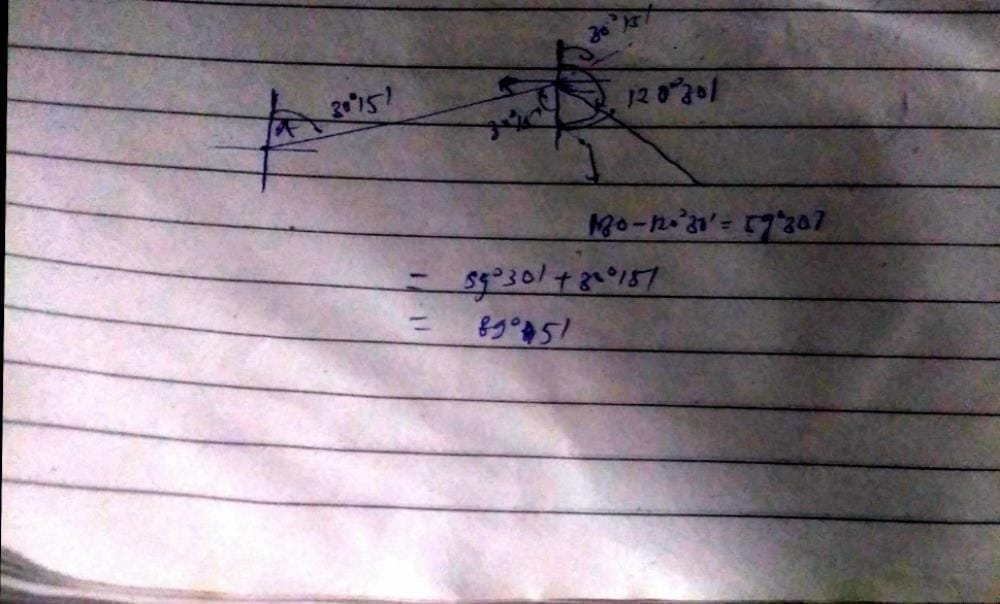 30°15'
30°15'
120°30'
A
30°15'
180-120°30' = 59°30'
= 59°30' + 30°15'
= 89°45'